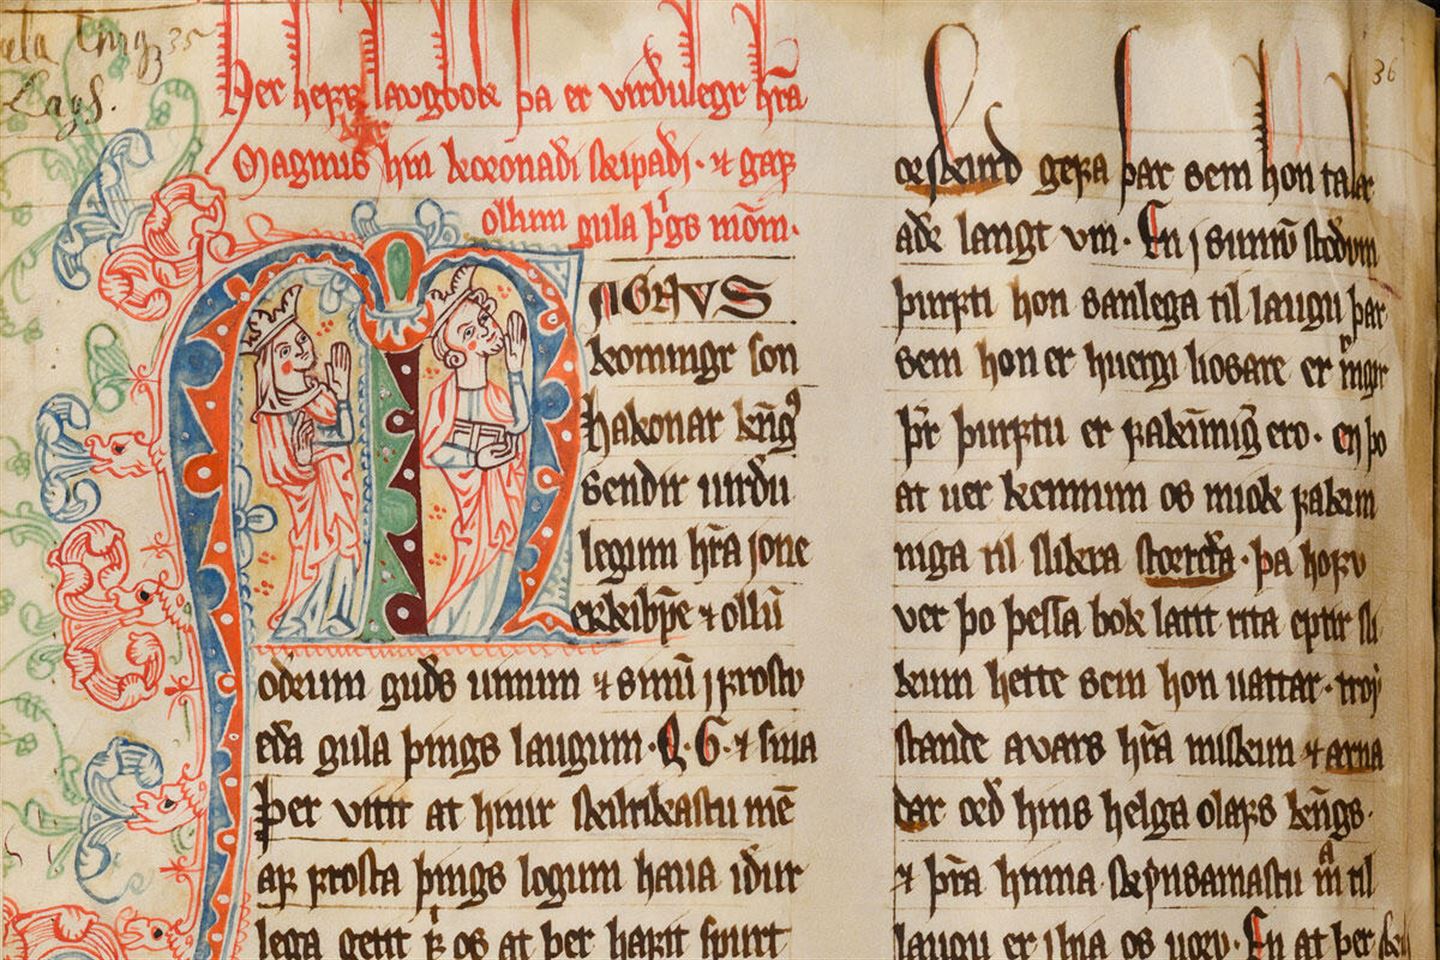 35
Lags.
Her hefꝛ laugbok þa er virdulegr hr̄a
Magnus hin koronadi skipadi · ⁊ gaf
ollum gula þigs mōm·
MAGNVS
koningr son
hakonar kn̄gs
sendir uirdu
legum hr̄a ione
erkibp̄e ⁊ ollū
odrum guds uinum ⁊ sinū i frostv
eda gula þings laugum · Q · G · ⁊ sina
Þer vitit at hinir skilrikastu mē
af frosta þings logum haua idur
lega getit f os at þer hafit spurt
36
or skurd gera þar sem hon talar
adr langt vm · En i sumū stodum
þurfti hon sanlega til laugu þar
sem hon er huergi liosare er mgir
þr̄ þurftu er fakunnig ero · en þo
at uer kennum os miok fakun
niga til slikra storræda · þa hofv
ver þo þessa bok latit rita eptir sli
kum hette sem hon uattar · troy
stande avars hr̄a miskun ⁊ arna
dar ord hins helga olafs kn̄gs ·
⁊ þr̄a hinna skynsamastu m̄ til
laugu er i hia os uoru · En at þer